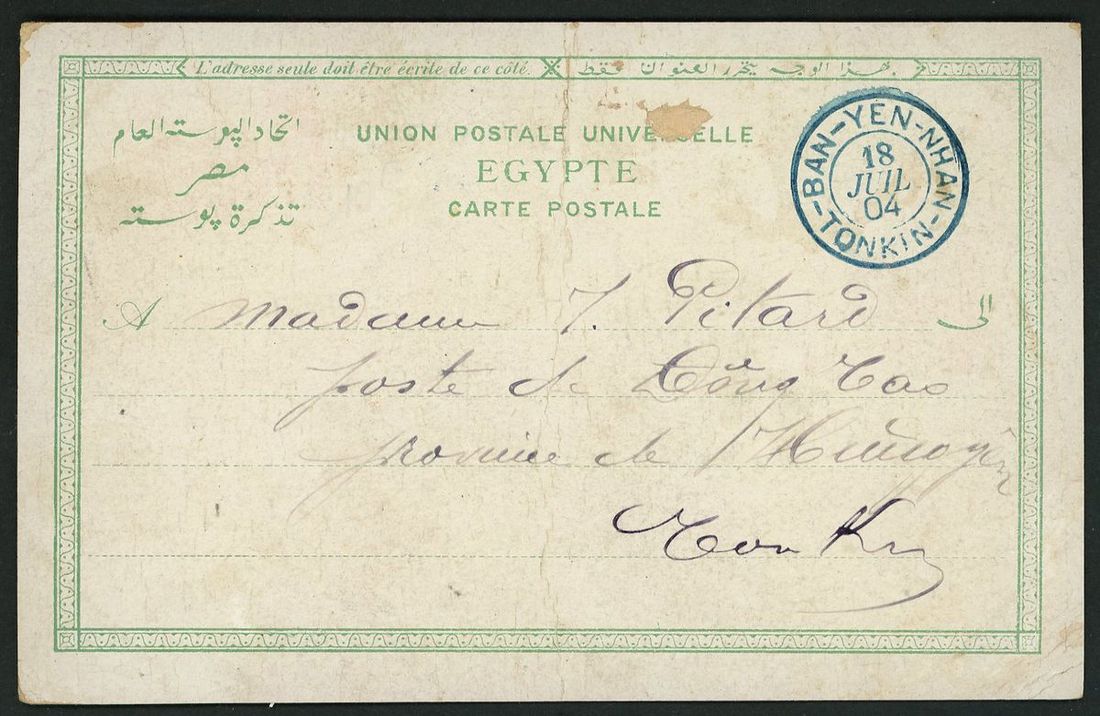 L'adresse seule doit être écrite de ce côté.
بهذا الوجه يتحرر العنوان فقط
اتحاد البوسته العام
مصر
تذكرة بوسته
UNION POSTALE UNIVERSELLE
EGYPTE
CARTE POSTALE
BAN-YÊN-NHAN
18
JUIL
04
TONKIN
A Madame J. Pitard الى
poste de Đông Cao
province de Hưng yên
Ton Kin